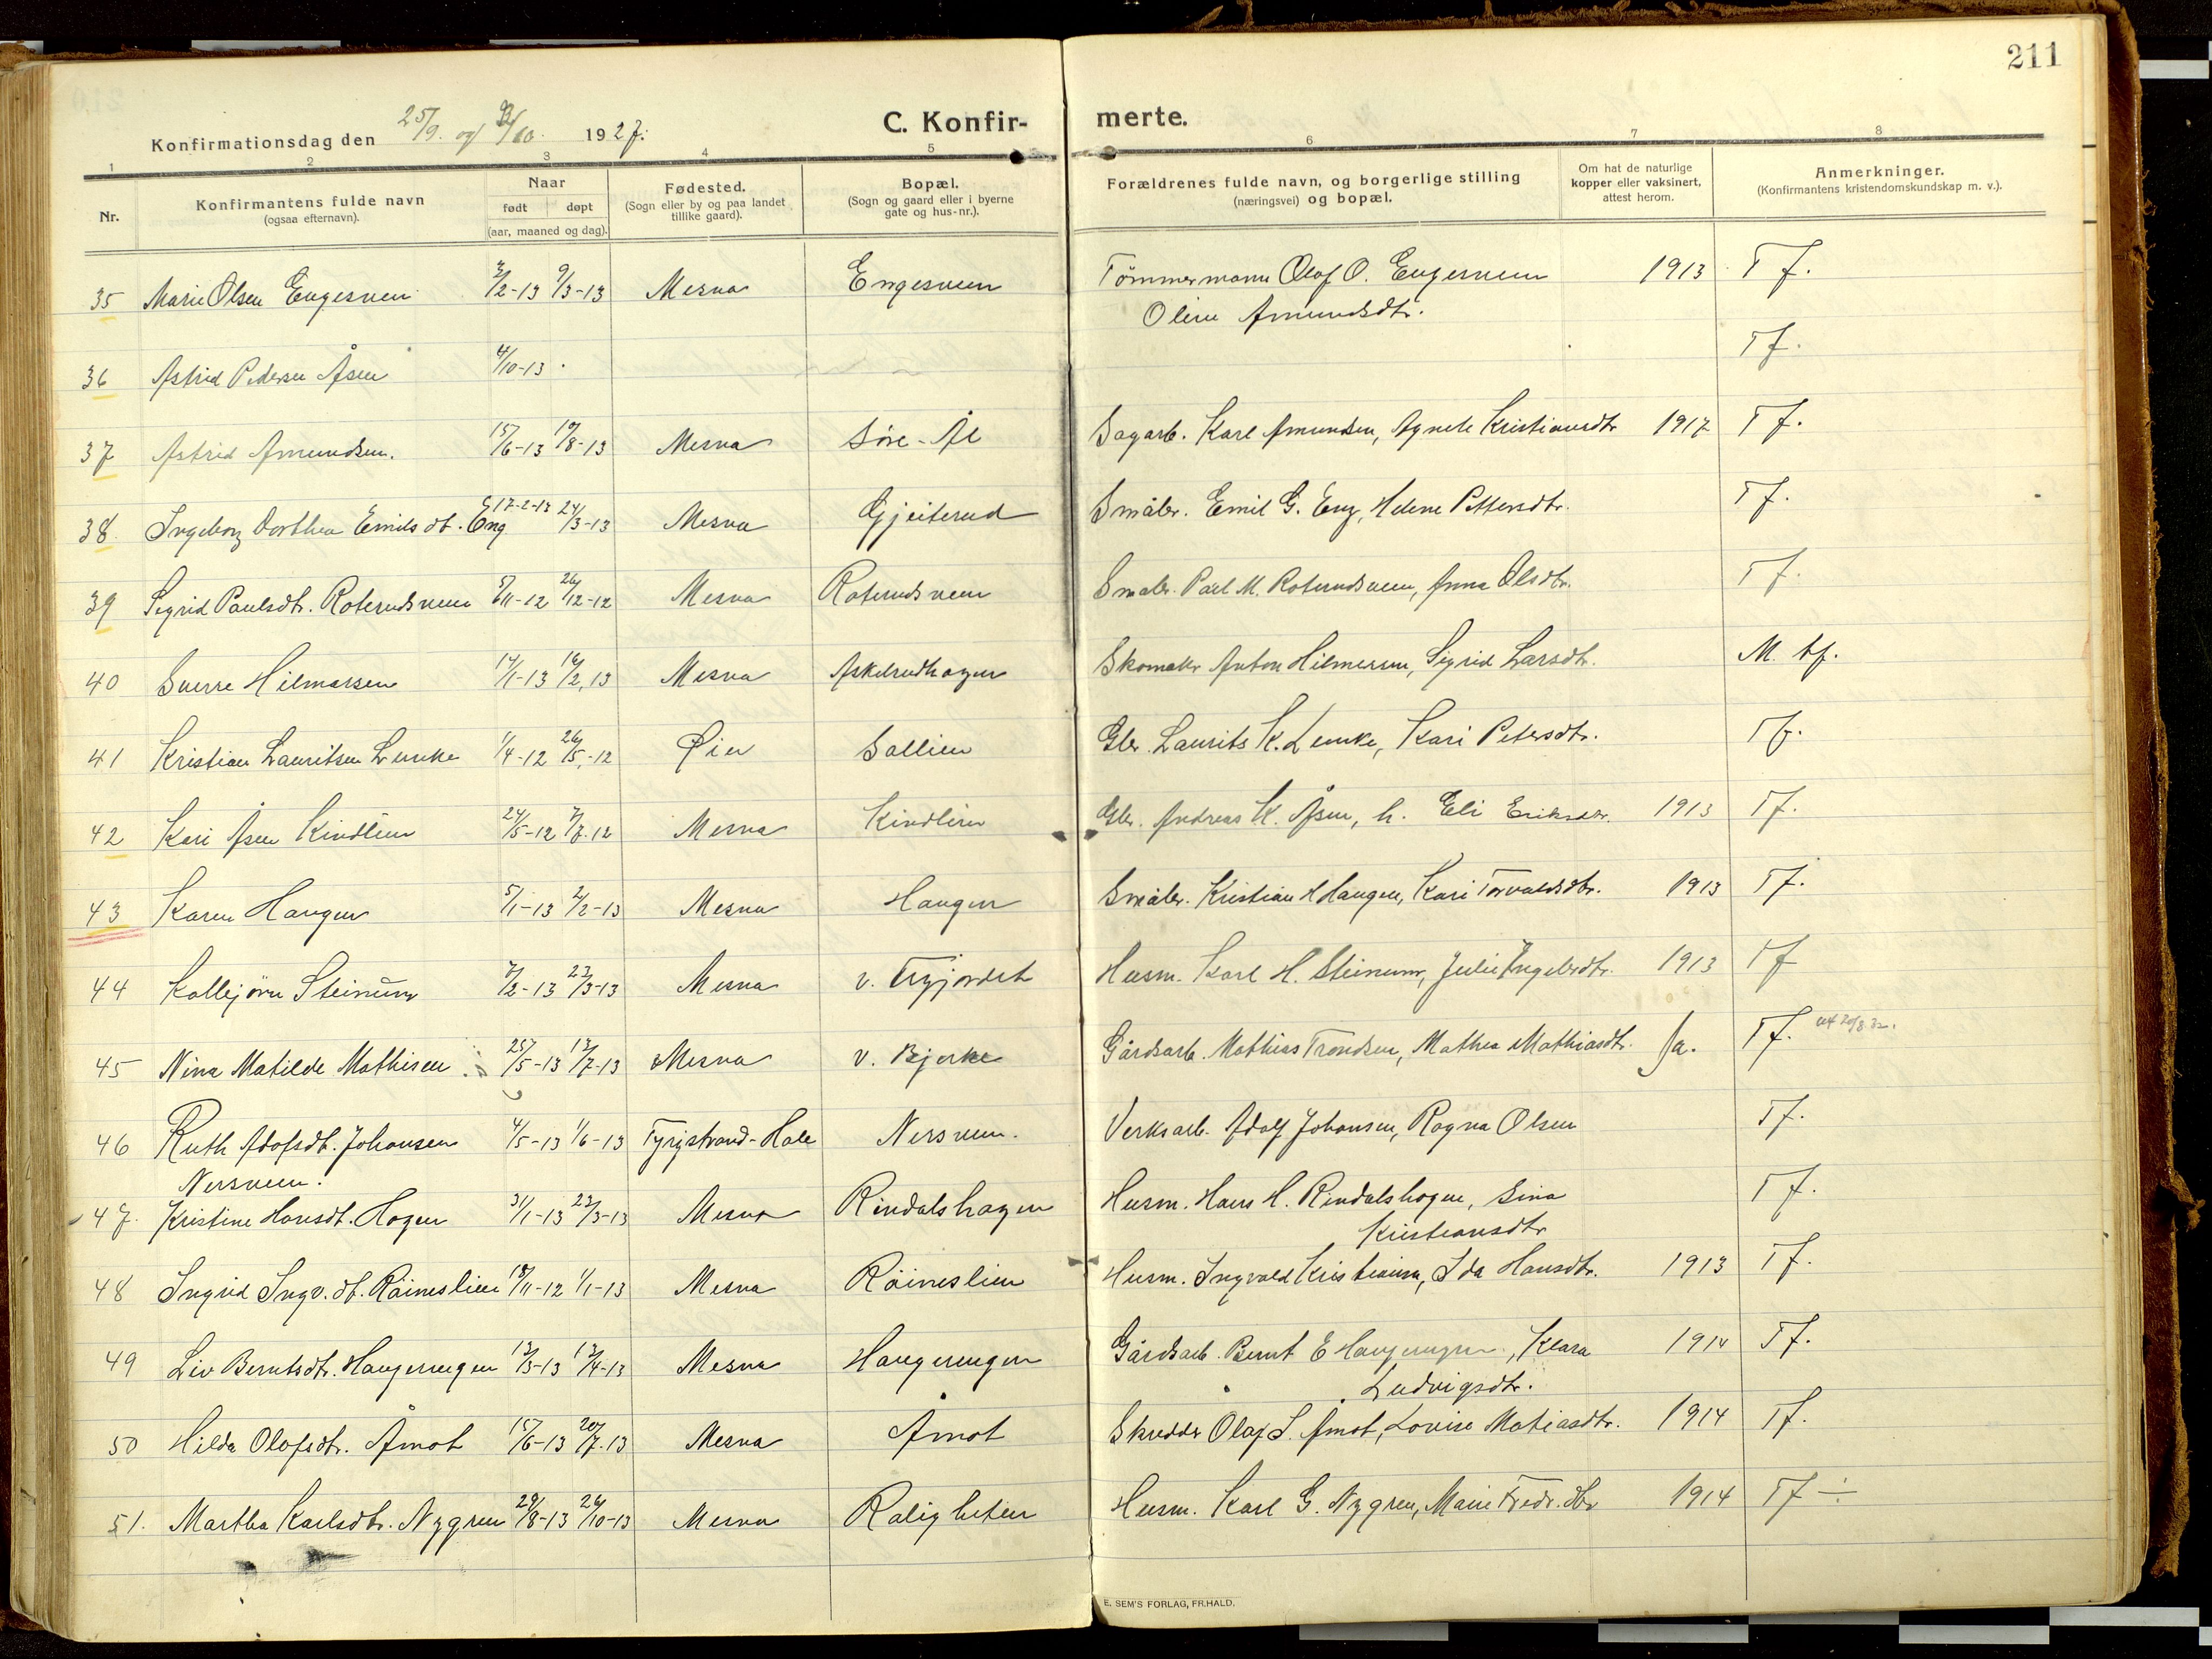 211
Konfirmationsdag den 25/9. og 2/10. 1927.
C. Konfir-
merte.
1 2 3 4 5 6 7 8
Nr.
Konfirmantens fulde navn
(ogsaa efternavn).
Naar
født døpt
(aar, maaned og dag).
Fødested.
(Sogn eller by og paa landet
tillike gaard).
Bopæl.
(Sogn og gaard eller i byerne
gate og hus-nr.).
Forældrenes fulde navn, og borgerlige stilling
(næringsvei) og bopæl.
Om hat de naturlige
kopper eller vaksinert,
attest herom.
Anmerkninger.
(Konfirmantens kristendomskundskap m. v.).
35 Marie Olsen Engesveen /2-13 9/3-13 Mesna Engesveen Tömmermann Olaf O. Engesveen 1913 T f.
Oline Amundsdtr.
36 Astrid Pedersen Åsen 4/10-13 T f.
37 Astrid Amundsen. 15/6-13 10/8-13 Mesna Søre-Ål Sagarb. Karl Amundsen, Agnete Kristiansdtr 1917 T f.
38. Ingeborg Dorthea Emilsdt. Eng 17-2-13 24/3-13 Mesna Gjeiterud Småbr. Emil G. Eng, Helene Pettersdtr. T f.
39 Sigrid Paulsdtr. Roterudsveen 5/11-12 26/12-12 Mesna Roterudsveen Småbr. Paul M. Roterudsveen, Anna Olsdtr. T f.
40 Sverre Hilmarsen 14/1-13 16/2,13 Mesna Askelrudhagen Skomaker Anton Hilmersen, Sigrid Larsdtr. M. tf.
41 Kristian Lauritsen Lunke 1/4-12 26/5-12 Øier Sollien Gbr. Laurits K. Lunke, Kari Petersdtr. T f.
42 Kari Åsen Kindlien 24/5-12 7/7-12 Mesna Kindlien Gbr. Andreas K. Åsen, h. Eli Eriksdtr. 1913 T f.
43 Karen Haugen 5/1-13 2/2-13 Mesna Haugen Småbr. Kristian H Haugen, Kari Torvaldsdtr. 1913 T f.
44 Kollejørn Steinum 7/2-13 23/3-13 Mesna Husm. Karl H. Steinum, Julie Engebrdtr. 1913 T f
45 Nina Matilde Mathisen 25/5-13 13/7-13 Mesna v. Bjerke Gårdsarb. Mathias Trondsen, Mathea Mathiasdtr. Ja. T f. utf 20/8 32.
46 Ruth Adofsdt. Johansen 4/5-13 1/6-13 Tyristrand-Hole Nersveen. Verksarb. Adolf Johansen, Ragna Olsen T f.
Nersveen.
47. Kristine Hansdt. Hagen 31/1-13 23/3-13 Mesna Rindalshagen Husm. Hans H. Rindalshagen, Sina T f.
Kristiansdtr
48 Ingrid Ingv. dt. Röineslien 18/11-12 1/1-13 Mesna Röineslien Husm. Ingvald Kristiansen, Ida Hansdtr. 1913 T f.
49 Liv Berntsdtr. Haugerengen 12/3-13 13/4-13 Mesna Haugerengen Gårdsarb. Bernt E Haugerengen, Klara 1914 T f.
Ludvigsdtr.
50 Hilda Olafsdtr. Åmot 15/6-13 20/7-13 Mesna Åmot Skredder Olaf L. Åmot, Lovise Matiasdtr. 1914 T f.
51. Martha Karlsdtr. Nygren 29/8-13 26/10-13 Mesna Roligheten Husm. Karl G. Nygren, Marie Fredr. dtr 1914 T f ÷
E. SEM'S FORLAG, FR.HALD.